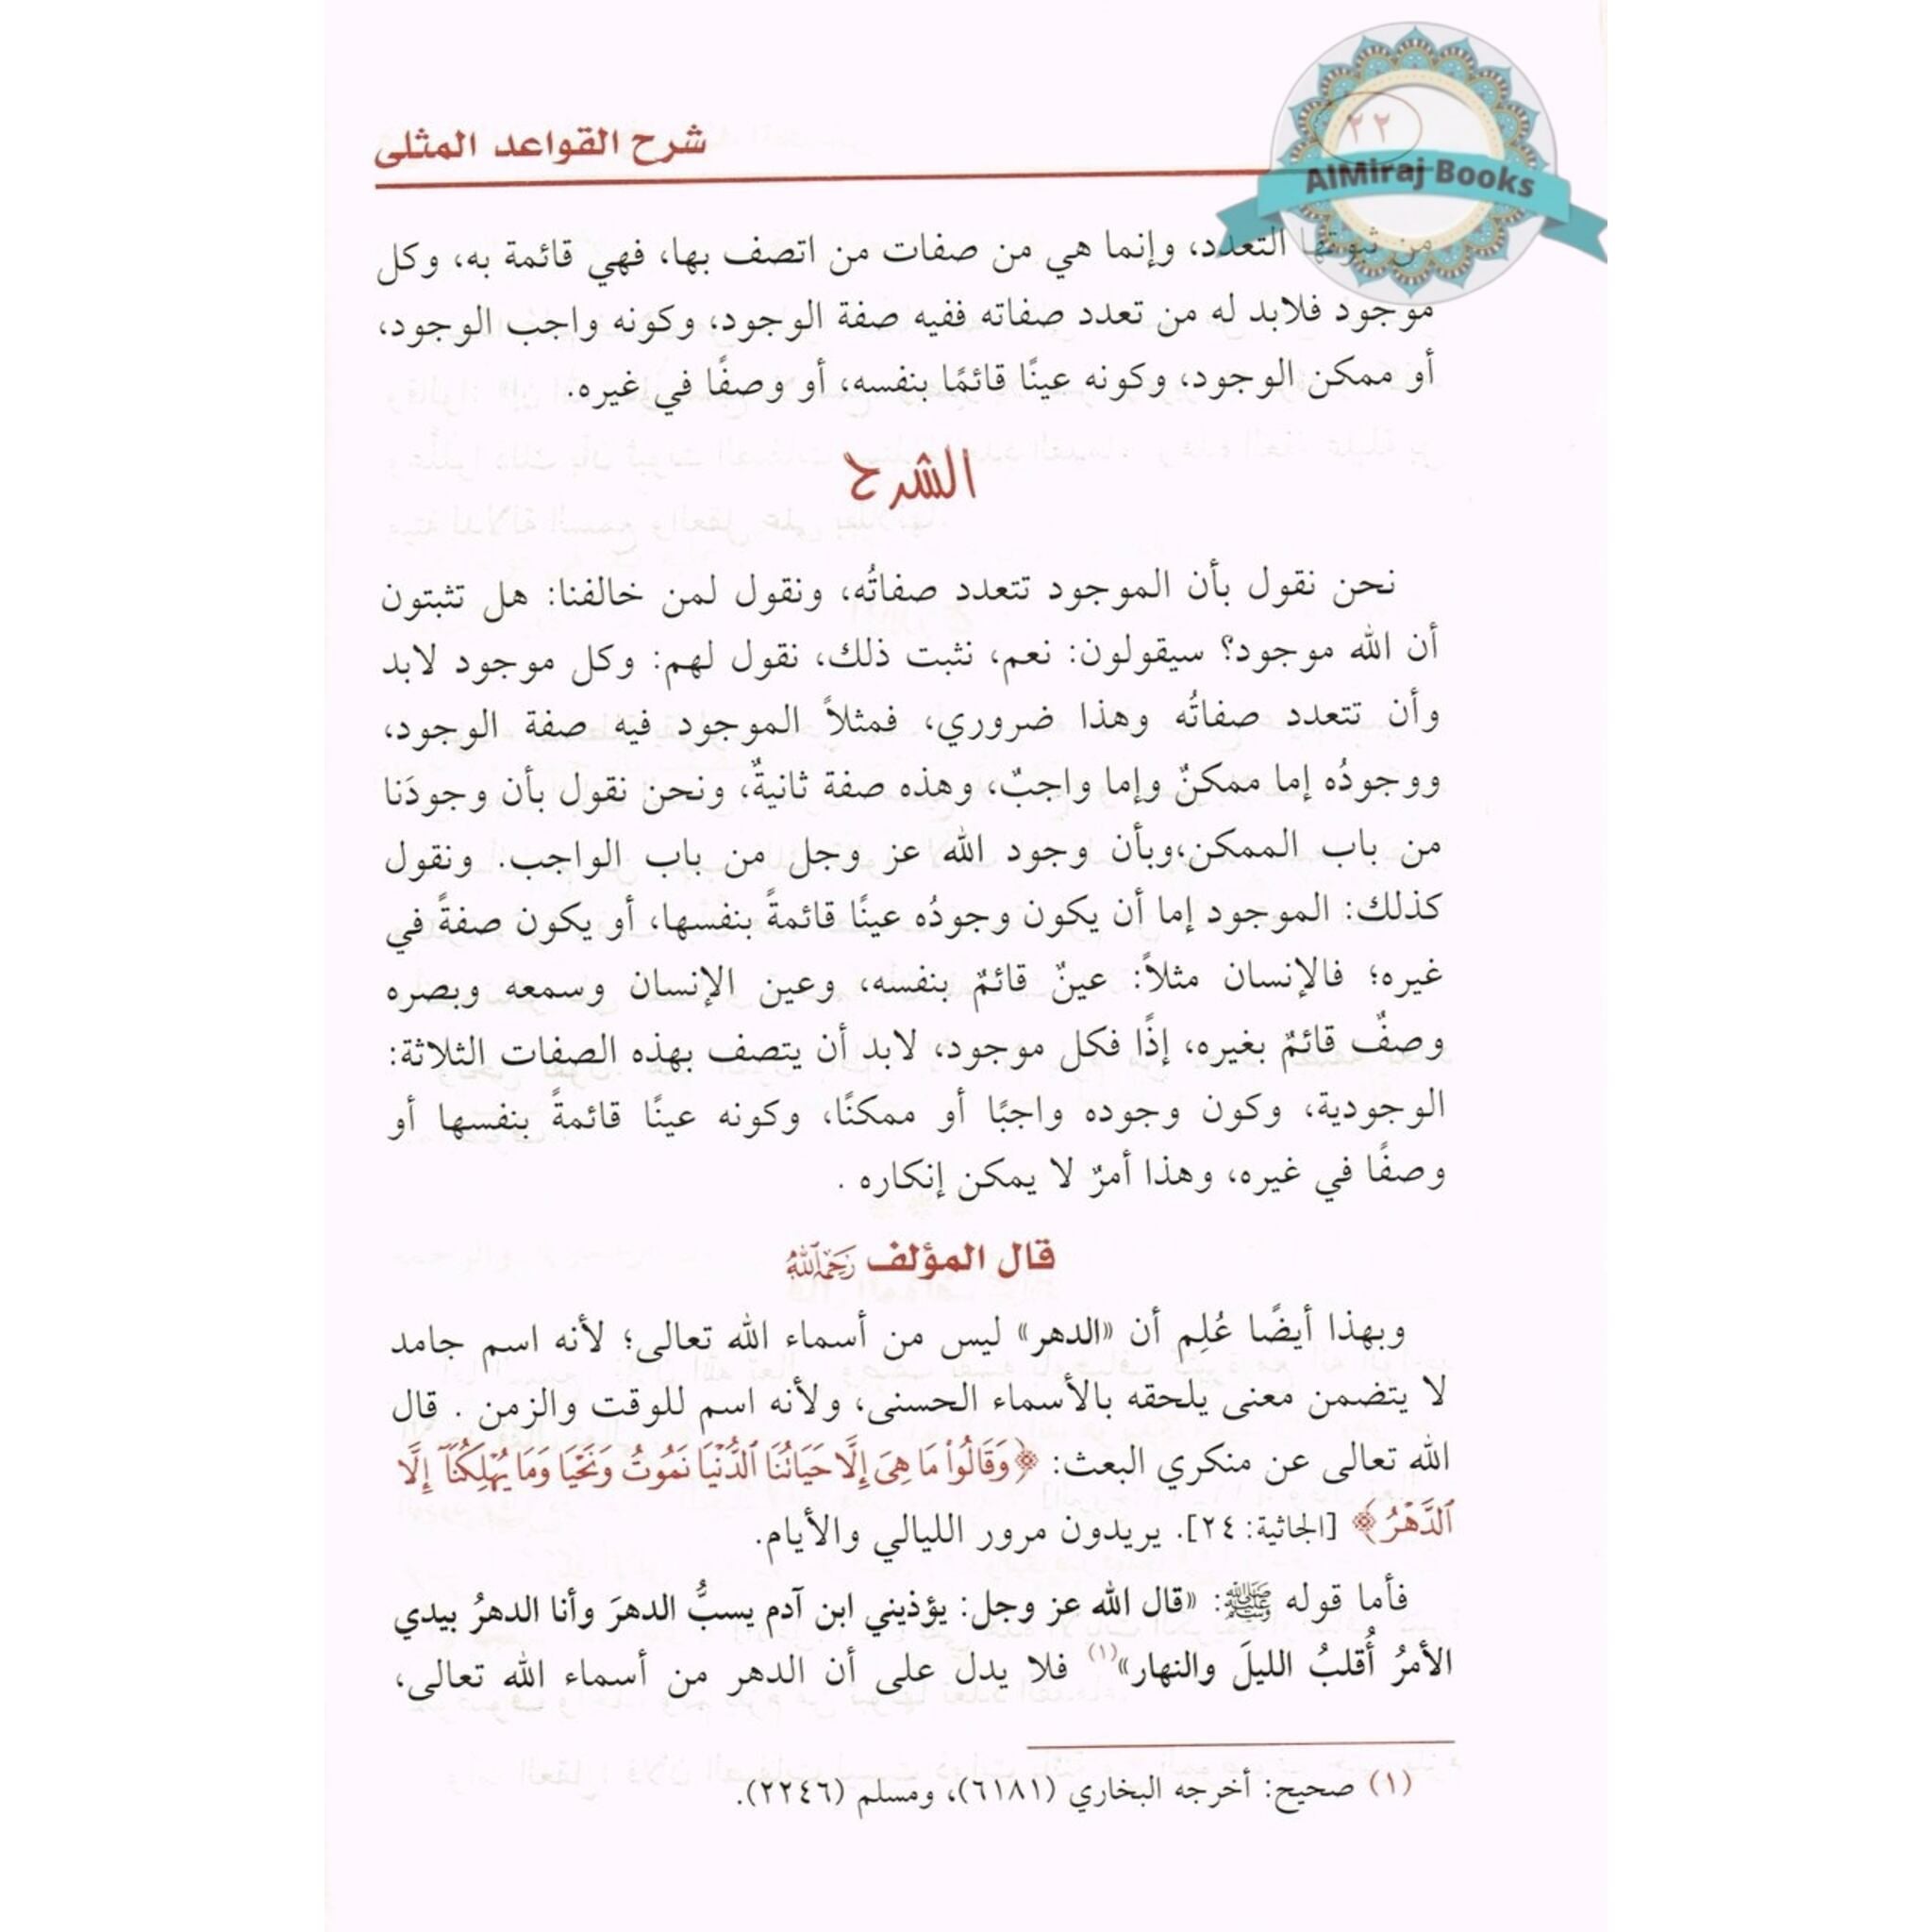 شرح القواعد المثلى
٢٢
AlMiraj Books
من ثبوتها التعدد، وإنما هي من صفات من اتصف بها، فهي قائمة به، وكل
موجود فلابد له من تعدد صفاته ففيه صفة الوجود، وكونه واجب الوجود،
أو ممكن الوجود، وكونه عينًا قائمًا بنفسه، أو وصفًا في غيره.
الشرح
نحن نقول بأن الموجود تتعدد صفاتُه، ونقول لمن خالفنا: هل تثبتون
أن الله موجود؟ سيقولون: نعم، نثبت ذلك، نقول لهم: وكل موجود لابد
وأن تتعدد صفاتُه وهذا ضروري، فمثلاً الموجود فيه صفة الوجود،
ووجودُه إما ممكنٌ وإما واجبٌ، وهذه صفة ثانيةٌ، ونحن نقول بأن وجودَنا
من باب الممكن،وبأن وجود الله عز وجل من باب الواجب. ونقول
كذلك: الموجود إما أن يكون وجودُه عينًا قائمةً بنفسها، أو يكون صفةً في
غيره؛ فالإنسان مثلاً: عينٌ قائمٌ بنفسه، وعين الإنسان وسمعه وبصره
وصفٌ قائمٌ بغيره، إذًا فكل موجود، لابد أن يتصف بهذه الصفات الثلاثة:
الوجودية، وكون وجوده واجبًا أو ممكنًا، وكونه عينًا قائمةً بنفسها أو
وصفًا في غيره، وهذا أمرٌ لا يمكن إنكاره .
قال المؤلف رَحِمَهُ ٱللَّهُ
وبهذا أيضًا عُلِم أن «الدهر» ليس من أسماء الله تعالى؛ لأنه اسم جامد
لا يتضمن معنى يلحقه بالأسماء الحسنى، ولأنه اسم للوقت والزمن . قال
الله تعالى عن منكري البعث: ﴿وَقَالُوا۟ مَا هِىَ إِلَّا حَيَاتُنَا ٱلدُّنْيَا نَمُوتُ وَنَحْيَا وَمَا يُهْلِكُنَآ إِلَّا
ٱلدَّهْرُ﴾ [الجاثية: ٢٤]. يريدون مرور الليالي والأيام.
فأما قوله ﷺ: «قال الله عز وجل: يؤذيني ابن آدم يسبُّ الدهرَ وأنا الدهرُ بيدي
الأمرُ أُقلبُ الليلَ والنهار»(١) فلا يدل على أن الدهر من أسماء الله تعالى،
(١) صحيح: أخرجه البخاري (٦١٨١)، ومسلم (٢٢٤٦).